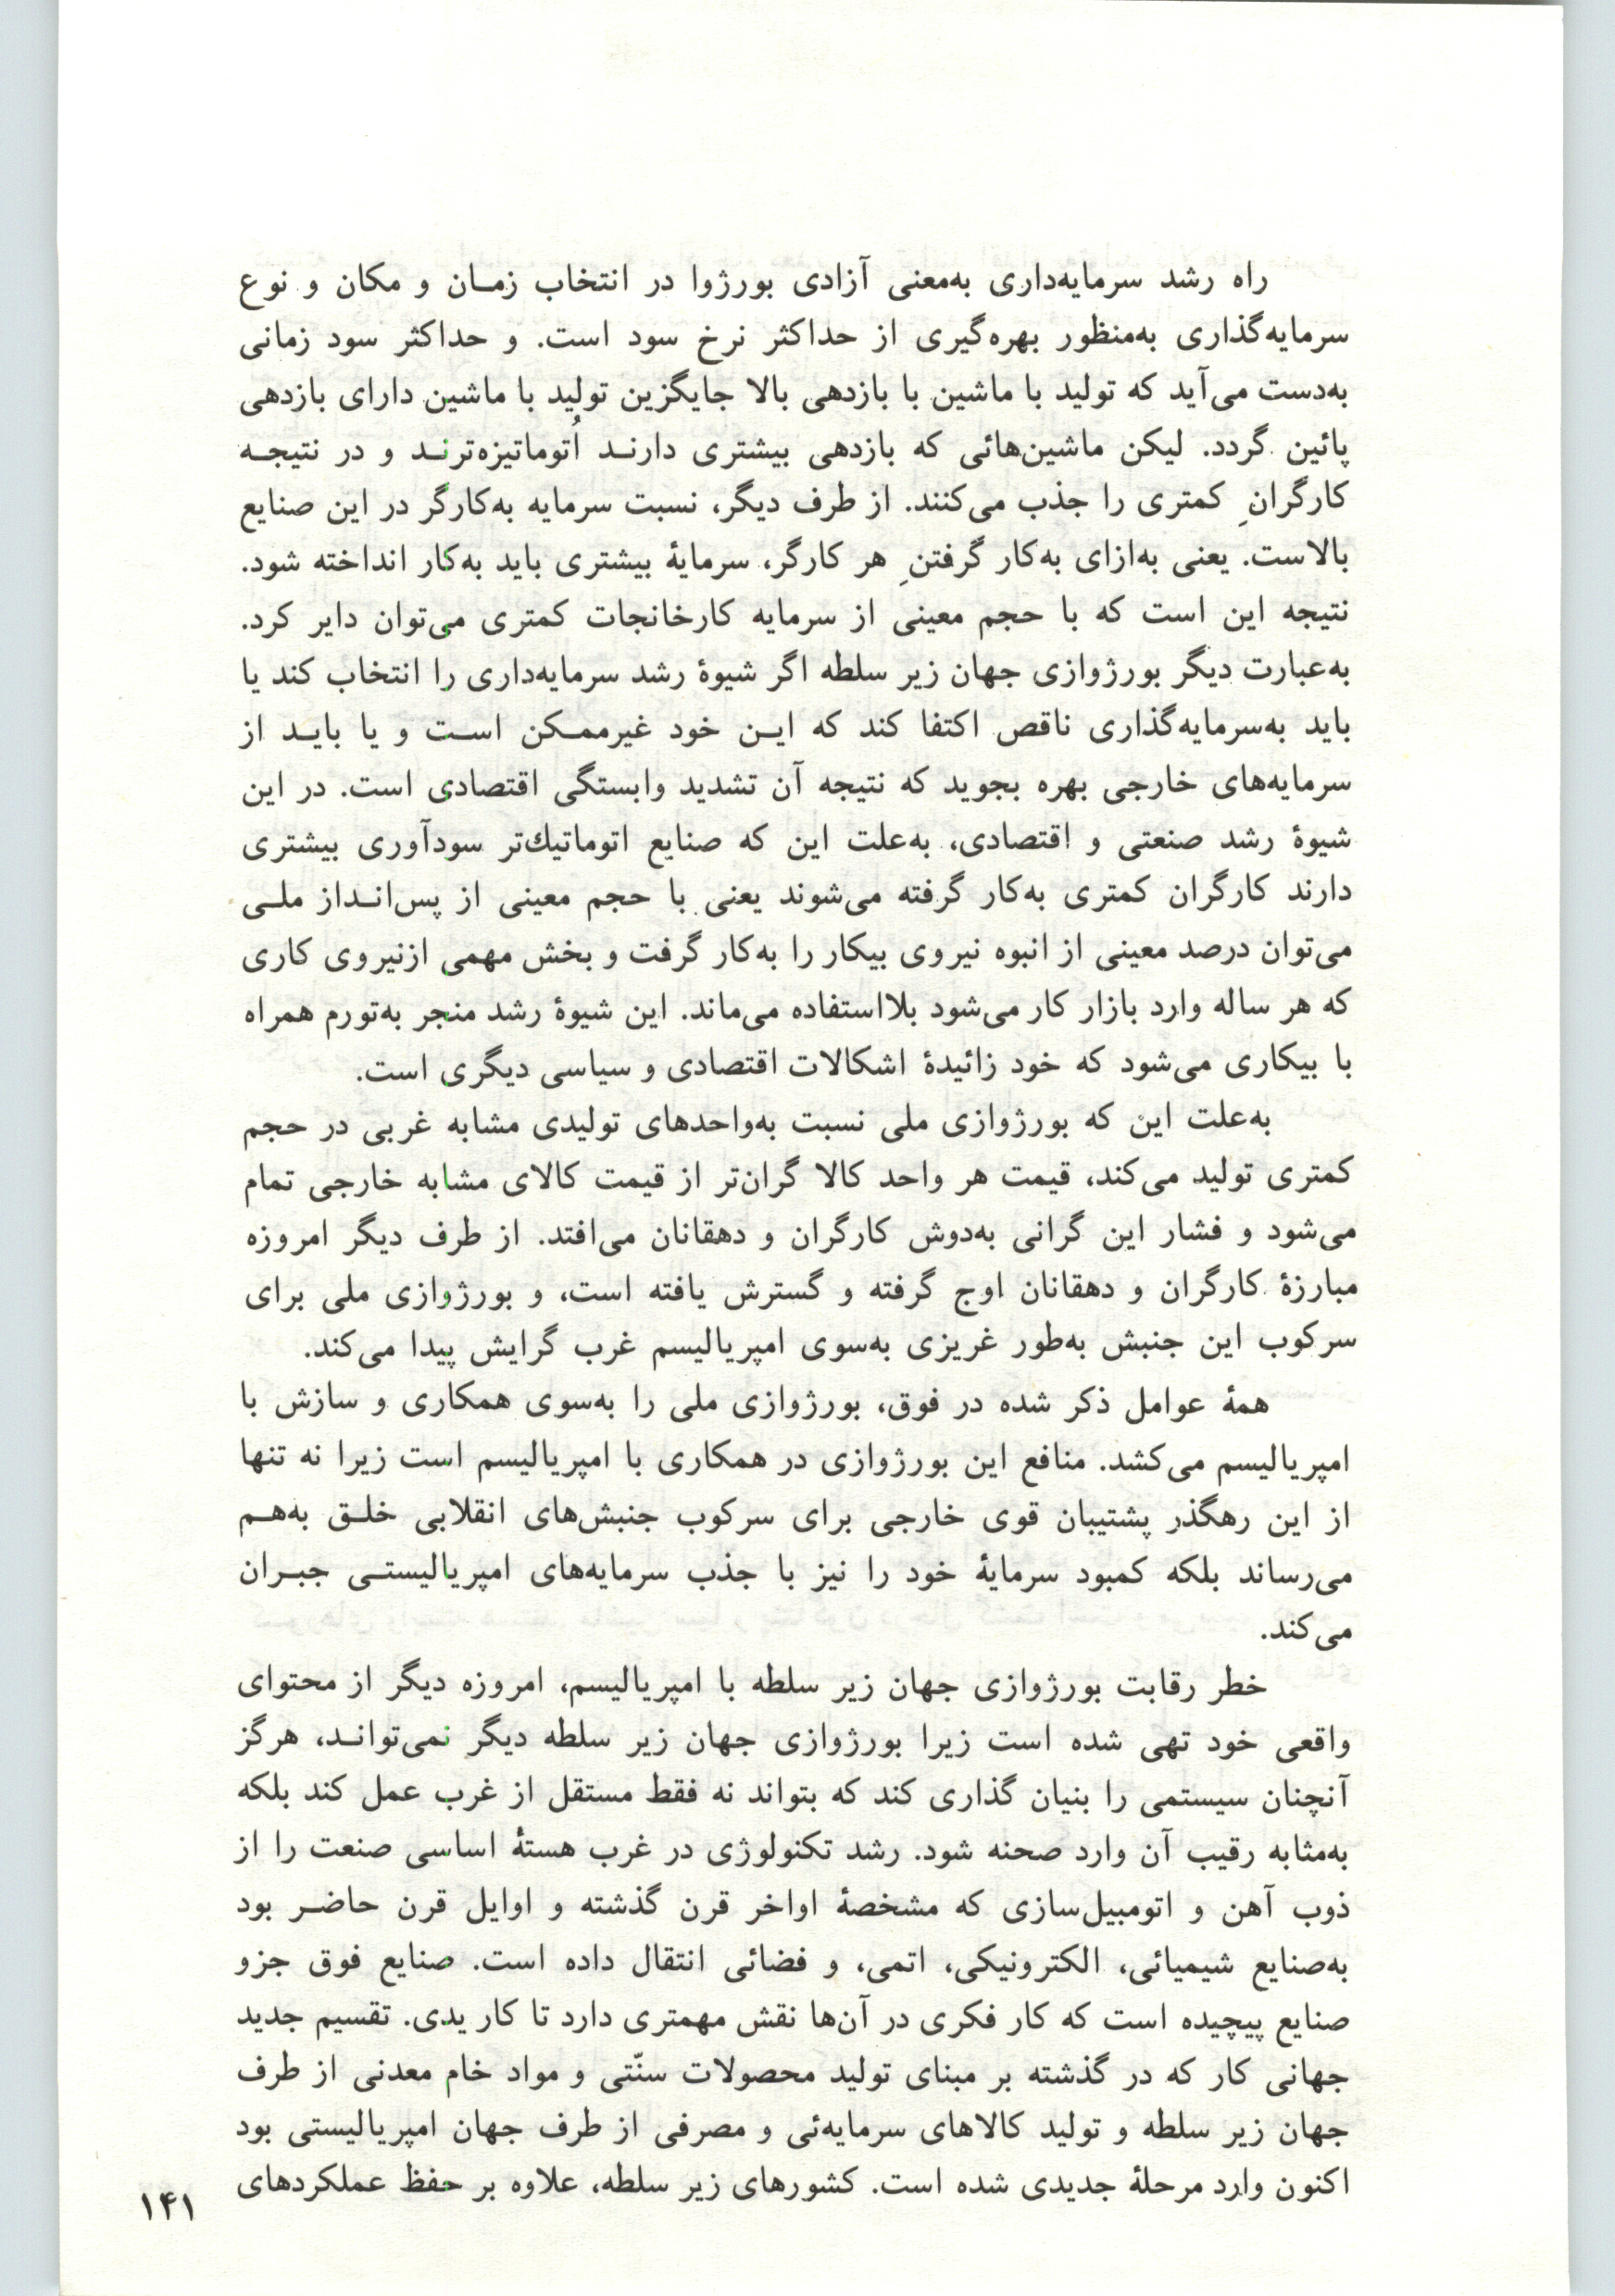 راه رشد سرمایه‌داری به‌معنی آزادی بورژوا در انتخاب زمـان و مکان و نوع
سرمایه‌گذاری به‌منظور بهره‌گیری از حداکثر نرخ سود است. و حداکثر سود زمانی
به‌دست می‌آید که تولید با ماشین با بازدهی بالا جایگزین تولید با ماشین دارای بازدهی
پائین گردد. لیکن ماشین‌هائی که بازدهی بیشتری دارنـد اُتوماتیزه‌ترنـد و در نتیجـه
کارگرانِ کمتری را جذب می‌کنند. از طرف دیگر، نسبت سرمایه به‌کارگر در این صنایع
بالاست. یعنی به‌ازای به‌کار گرفتنِ هر کارگر، سرمایهٔ بیشتری باید به‌کار انداخته شود.
نتیجه این است که با حجم معینی از سرمایه کارخانجات کمتری می‌توان دایر کرد.
به‌عبارت دیگر بورژوازی جهان زیر سلطه اگر شیوهٔ رشد سرمایه‌داری را انتخاب کند یا
باید به‌سرمایه‌گذاری ناقص اکتفا کند که ایـن خود غیرممـکن اسـت و یا بایـد از
سرمایه‌های خارجی بهره بجوید که نتیجه آن تشدید وابستگی اقتصادی است. در این
شیوهٔ رشد صنعتی و اقتصادی، به‌علت این که صنایع اتوماتیك‌تر سودآوری بیشتری
دارند کارگران کمتری به‌کار گرفته می‌شوند یعنی با حجم معینی از پس‌انـداز ملـی
می‌توان درصد معینی از انبوه نیروی بیکار را به‌کار گرفت و بخش مهمی ازنیروی کاری
که هر ساله وارد بازار کار می‌شود بلااستفاده می‌ماند. این شیوهٔ رشد منجر به‌تورم همراه
با بیکاری می‌شود که خود زائیدهٔ اشکالات اقتصادی و سیاسی دیگری است.
به‌علت این که بورژوازی ملی نسبت به‌واحدهای تولیدی مشابه غربی در حجم
کمتری تولید می‌کند، قیمت هر واحد کالا گران‌تر از قیمت کالای مشابه خارجی تمام
می‌شود و فشار این گرانی به‌دوش کارگران و دهقانان می‌افتد. از طرف دیگر امروزه
مبارزهٔ کارگران و دهقانان اوج گرفته و گسترش یافته است، و بورژوازی ملی برای
سرکوب این جنبش به‌طور غریزی به‌سوی امپریالیسم غرب گرایش پیدا می‌کند.
همهٔ عوامل ذکر شده در فوق، بورژوازی ملی را به‌سوی همکاری و سازش با
امپریالیسم می‌کشد. منافع این بورژوازی در همکاری با امپریالیسم است زیرا نه تنها
از این رهگذر پشتیبان قوی خارجی برای سرکوب جنبش‌های انقلابی خلـق به‌هـم
می‌رساند بلکه کمبود سرمایهٔ خود را نیز با جذب سرمایه‌های امپریالیستـی جبـران
می‌کند.
خطر رقابت بورژوازی جهان زیر سلطه با امپریالیسم، امروزه دیگر از محتوای
واقعی خود تهی شده است زیرا بورژوازی جهان زیر سلطه دیگر نمی‌توانـد، هرگز
آنچنان سیستمی را بنیان گذاری کند که بتواند نه فقط مستقل از غرب عمل کند بلکه
به‌مثابه رقیب آن وارد صحنه شود. رشد تکنولوژی در غرب هستهٔ اساسی صنعت را از
ذوب آهن و اتومبیل‌سازی که مشخصهٔ اواخر قرن گذشته و اوایل قرن حاضـر بود
به‌صنایع شیمیائی، الکترونیکی، اتمی، و فضائی انتقال داده است. صنایع فوق جزو
صنایع پیچیده است که کار فکری در آن‌ها نقش مهمتری دارد تا کار یدی. تقسیم جدید
جهانی کار که در گذشته بر مبنای تولید محصولات سنّتی و مواد خام معدنی از طرف
جهان زیر سلطه و تولید کالاهای سرمایه‌ئی و مصرفی از طرف جهان امپریالیستی بود
اکنون وارد مرحلهٔ جدیدی شده است. کشورهای زیر سلطه، علاوه بر حفظ عملکردهای
۱۴۱